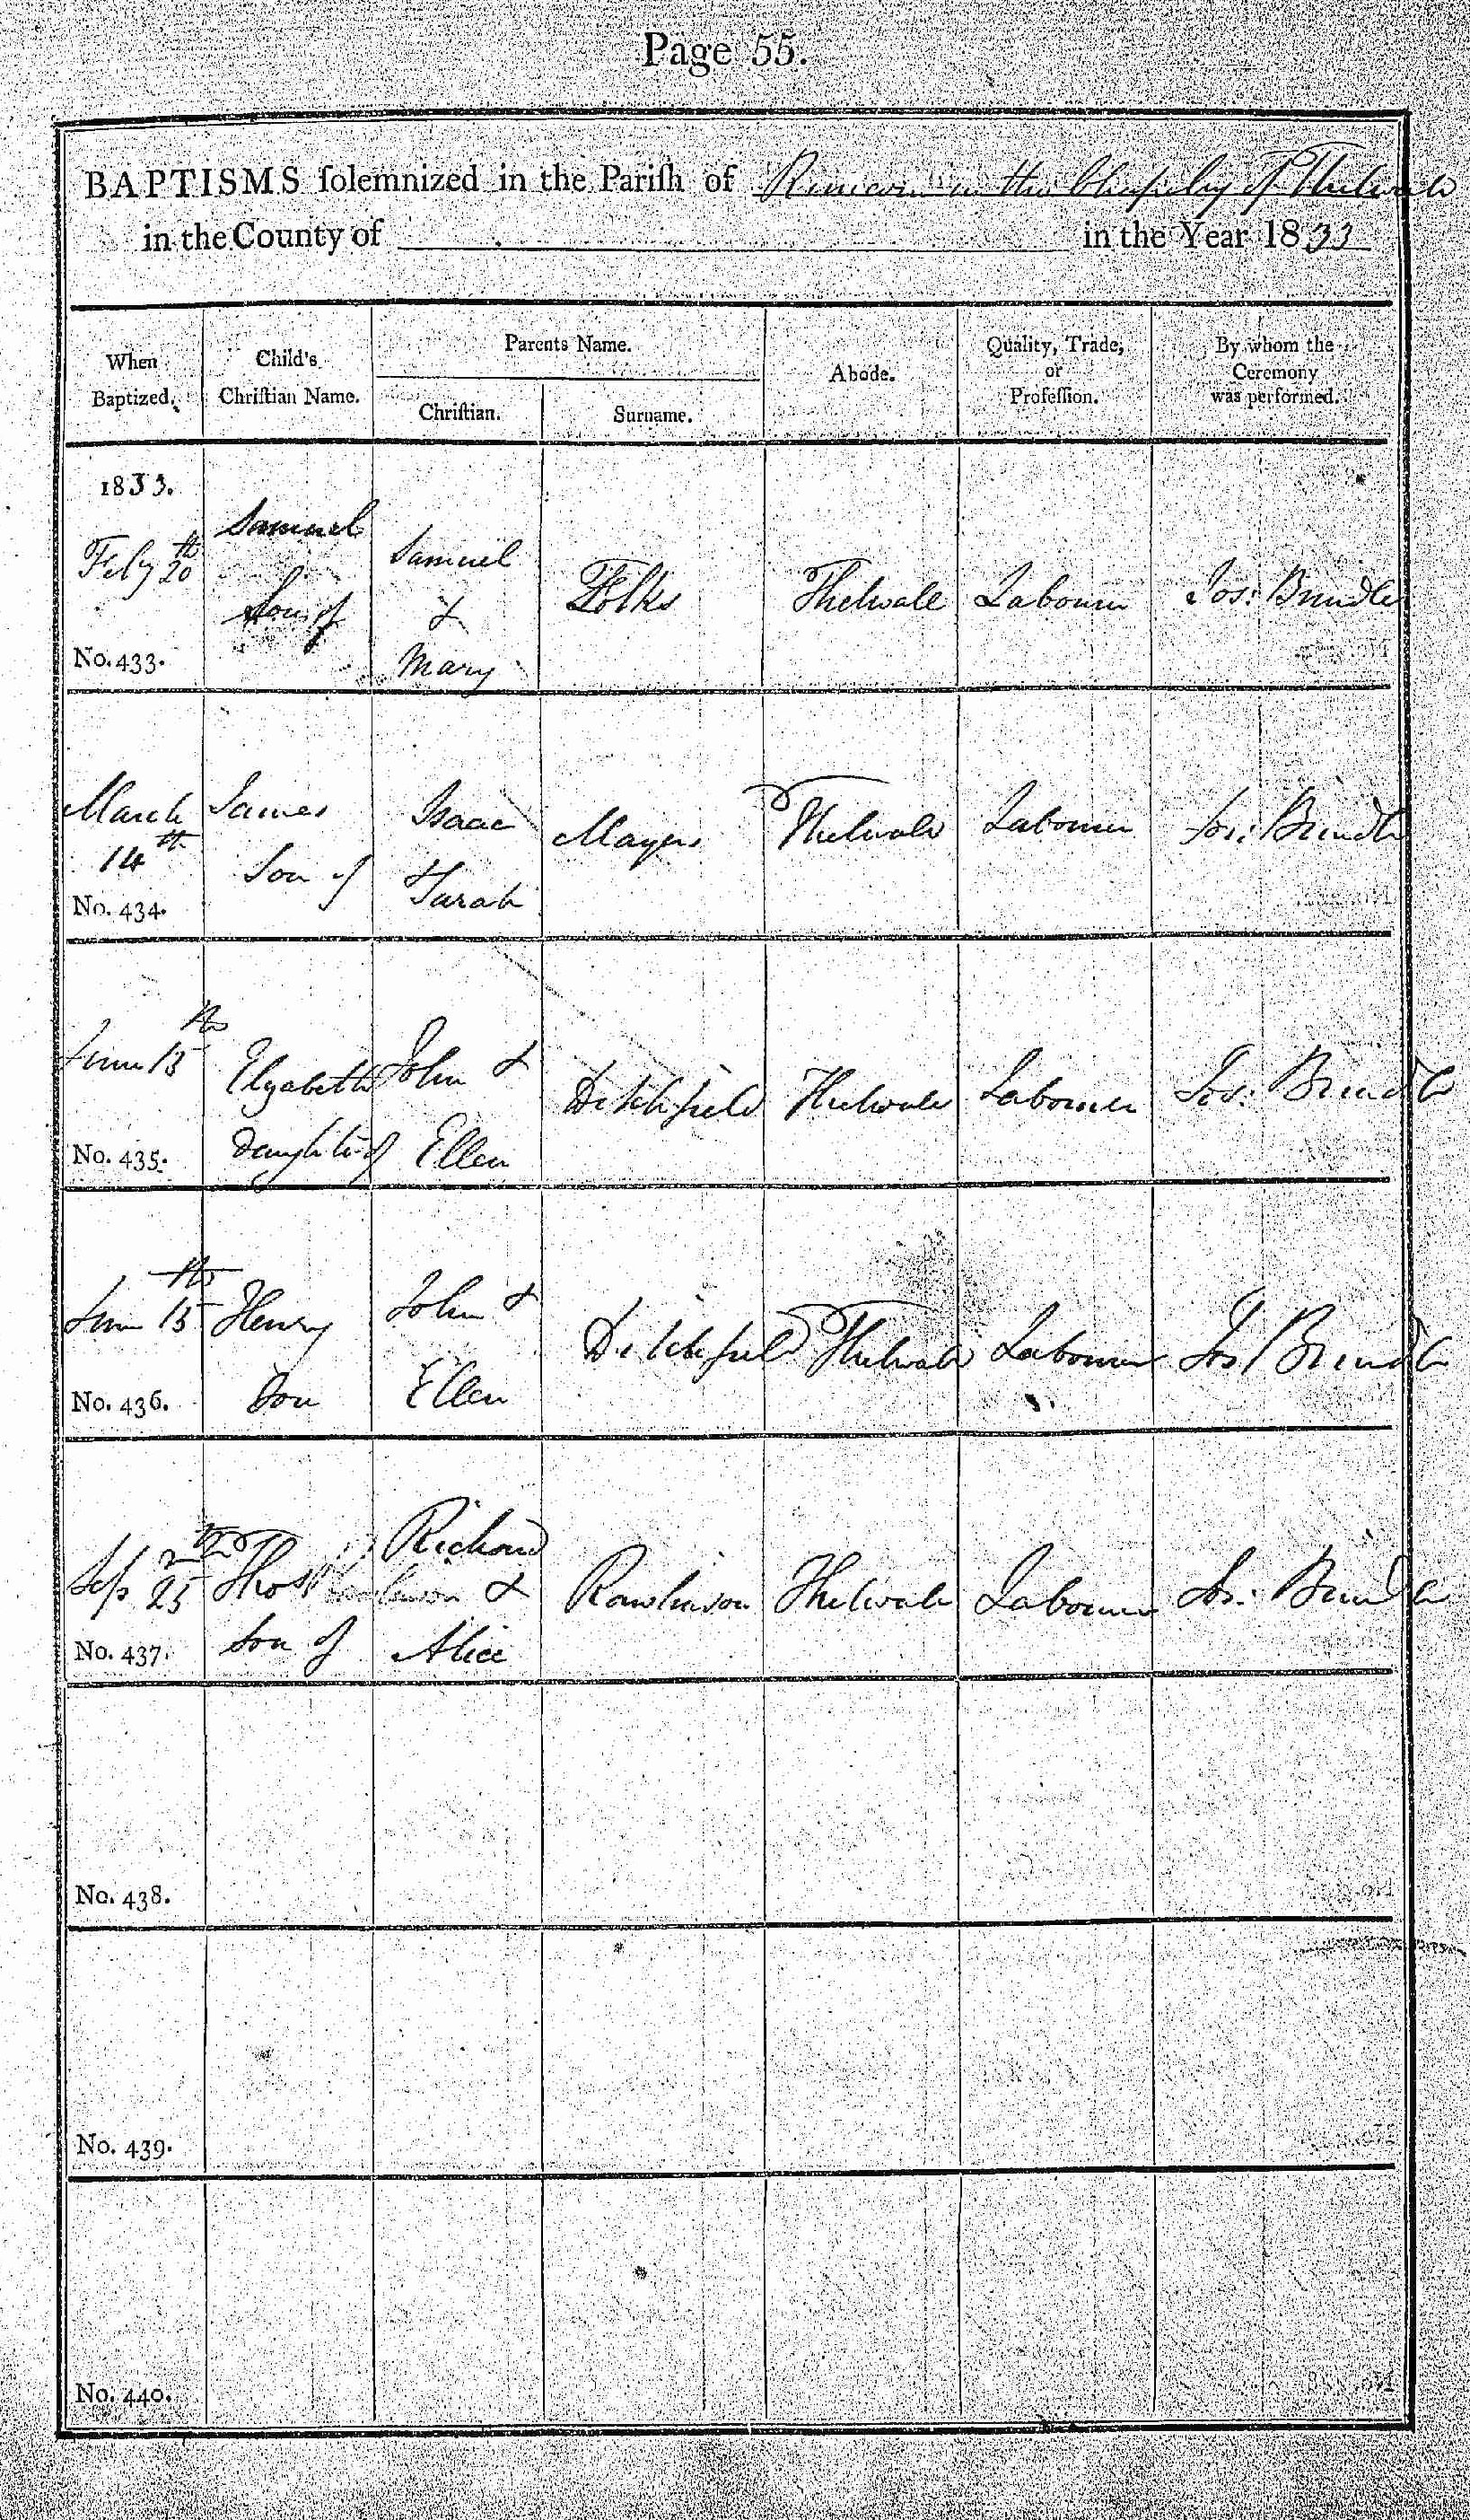 Page 55.
BAPTISMS solemnized in the Parish of Runcorn in the Chapelry of Thelwale
in the County of in the Year 1833
When Baptized. Child's Christian Name. Parents Name. Abode. Quality, Trade, or Profession. By whom the Ceremony was performed.
Christian. Surname.
1833.
Feby 20th Samuel Son of Samuel & Mary Folks Thelwall Labourer Jos: Brindle
No. 433.
March 14th James Son of Isaac & Sarah Mayers Thelwale Labourer Jos: Brindle
No. 434.
June 15th Elyabeth Daughter of John & Ellen Ditchfield Thelwale Labourer Jos: Brindle
No. 435.
June 15th Henry Son John & Ellen Ditchfield Thelwale Labourer Jos Brindle
No. 436.
Sep 25th Thos Son of Richard & Alice Rawlinson Thelwale Labourer Jos: Brindle
No. 437.
No. 438.
No. 439.
No. 440.